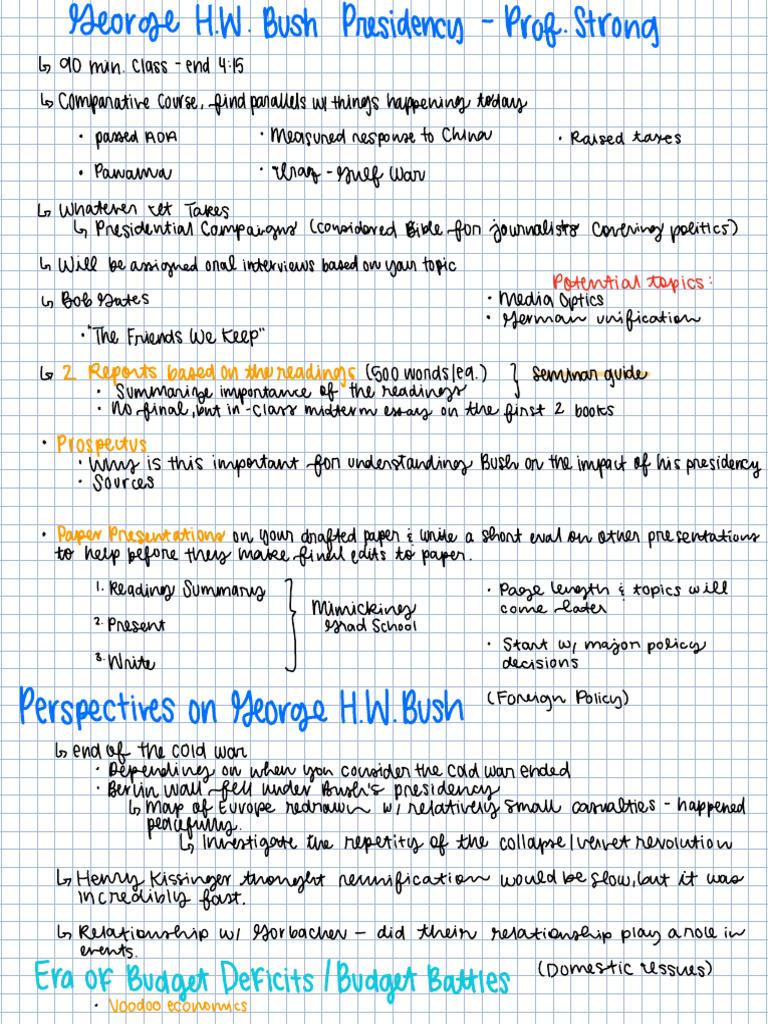 George H.W. Bush Presidency - Prof. Strong
↳ 90 min. class - end 4:15
↳ Comparative Course, find parallels w/ things happening today
• passed ADA • Measured response to China • Raised taxes
• Panama • Iraq - Gulf War
↳ Whatever It Takes
↳ Presidential Campaigns (considered Bible for journalists covering politics)
↳ Will be assigned oral interviews based on your topic
Potential topics:
↳ Bob Gates
• Media Optics
• German unification
• "The Friends We Keep"
↳ 2 Reports based on the readings (500 words/ea.) } seminar guide
• Summarize importance of the readings
• No final, but in-class midterm essay on the first 2 books
• Prospectus
• Why is this important for understanding Bush on the impact of his presidency
• Sources
• Paper Presentations on your drafted paper & write a short eval on other presentations
to help before they make final edits to paper.
1. Reading Summary
2. Present
3. Write
Mimicking
Grad School
• Page length & topics will
come later
• Start w/ major policy
decisions
(Foreign Policy)
Perspectives on George H.W. Bush
↳ end of the cold war
• Depending on when you consider the cold war ended
• Berlin Wall fell under Bush's presidency
↳ Map of Europe redrawn w/ relatively small casualties - happened
peacefully.
↳ Investigate the repetity of the collapse/velvet revolution
↳ Henry Kissinger thought reunification would be slow, but it was
incredibly fast.
↳ Relationship w/ Gorbachev - did their relationship play a role in
events.
Era of Budget Deficits/Budget Battles (Domestic Issues)
• Voodoo economics